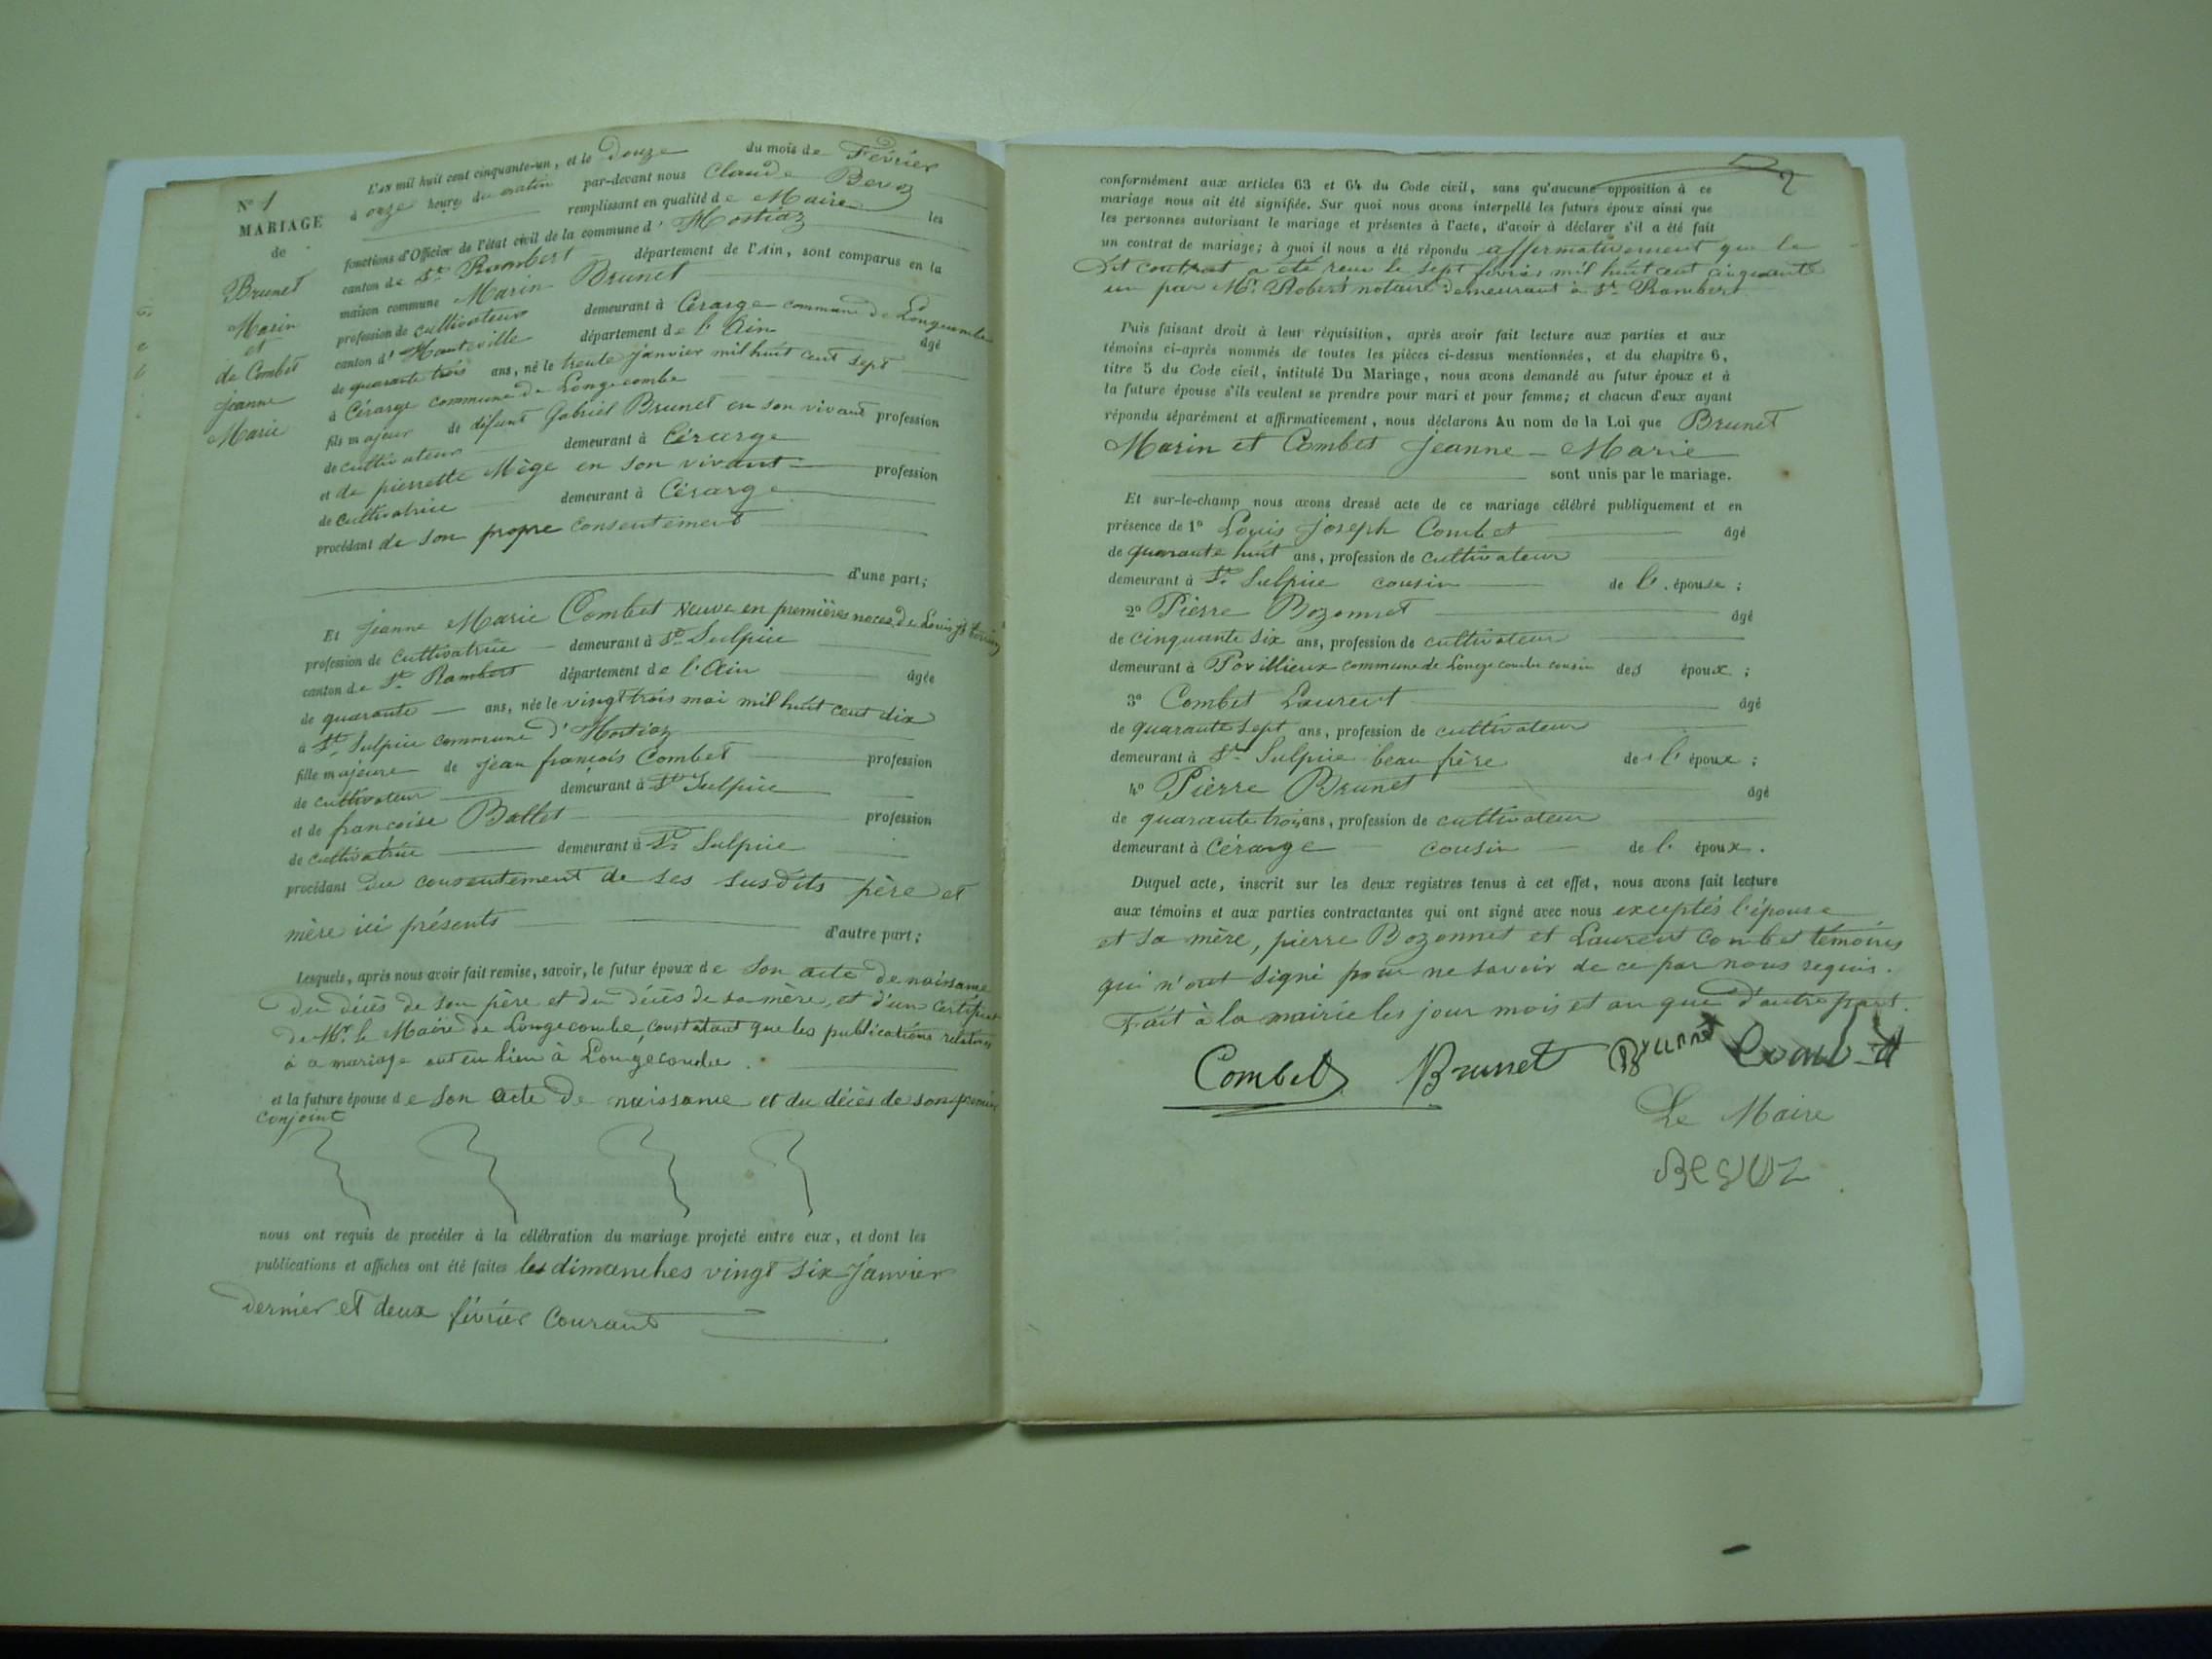 N° 1
MARIAGE
de
Brunet
Marin
et
de Combet
Jeanne
Marie
L'an mil huit cent cinquante-un, et le Douze du mois de Février
à onze heures du matin par-devant nous Claude
remplissant en qualité de Maire les
fonctions d'Officier de l'état civil de la commune d'Hostiaz
canton de St. Rambert département de l'Ain, sont comparus en la
maison commune Marin Brunet
profession de cultivateur demeurant à Cérarge commune de Longecombe
canton d'Hauteville département de l'Ain âgé
de quarante trois ans, né le trente janvier mil huit cent sept
à Cérarge commune de Longecombe
fils majeur de défunt Gabriel Brunet en son vivant profession
de cultivateur demeurant à Cérarge
et de pierrette Mège en son vivant profession
de cultivatrice demeurant à Cérarge
procédant de son propre consentement
d'une part;
Et Jeanne Marie Combet Veuve en premières noces de Louis
profession de cultivatrice demeurant à St. Sulpice
canton de St. Rambert département de l'Ain âgée
de quarante ans, née le vingt trois mai mil huit cent dix
à St. Sulpice commune d'Hostiaz
fille majeure de Jean françois Combet profession
de cultivateur demeurant à St Sulpice
et de françoise Ballet profession
de cultivatrice demeurant à St. Sulpice
procédant Du consentement de ses susdits père et
mère ici présents d'autre part;
Lesquels, après nous avoir fait remise, savoir, le futur époux de son acte de naissance
du décès de son père et du décès de sa mère, et d'un certificat
de Mr. le Maire de Longecombe, constatant que les publications relatives
à ce mariage ont eu lieu à Longecombe.
et la future épouse de son acte de naissance et du décès de son premier
conjoint
nous ont requis de procéder à la célébration du mariage projeté entre eux, et dont les
publications et affiches ont été faites les dimanches vingt six Janvier
dernier et deux février courant
2
conformément aux articles 63 et 64 du Code civil, sans qu'aucune opposition à ce
mariage nous ait été signifiée. Sur quoi nous avons interpellé les futurs époux ainsi que
les personnes autorisant le mariage et présentes à l'acte, d'avoir à déclarer s'il a été fait
un contrat de mariage; à quoi il nous a été répondu affirmativement que le
dit contrat a été reçu le sept février mil huit cent cinquante
un par Mr. Robert notaire demeurant à St. Rambert
Puis faisant droit à leur réquisition, après avoir fait lecture aux parties et aux
témoins ci-après nommés de toutes les pièces ci-dessus mentionnées, et du chapitre 6,
titre 5 du Code civil, intitulé Du Mariage, nous avons demandé au futur époux et à
la future épouse s'ils veulent se prendre pour mari et pour femme; et chacun d'eux ayant
répondu séparément et affirmativement, nous déclarons Au nom de la Loi que Brunet
Marin et Combet Jeanne-Marie
sont unis par le mariage.
Et sur-le-champ nous avons dressé acte de ce mariage célébré publiquement et en
présence de 1° Louis Joseph Combet âgé
de quarante huit ans, profession de cultivateur
demeurant à St. Sulpice cousin de l'épouse;
2° Pierre Bozonnet âgé
de cinquante six ans, profession de cultivateur
demeurant à Povillieux commune de Longecombe cousin des époux;
3° Combet Laurent âgé
de quarante sept ans, profession de cultivateur
demeurant à St. Sulpice beau frère de l'époux;
4° Pierre Brunet âgé
de quarante trois ans, profession de cultivateur
demeurant à Cérarge cousin de l'époux.
Duquel acte, inscrit sur les deux registres tenus à cet effet, nous avons fait lecture
aux témoins et aux parties contractantes qui ont signé avec nous exceptés l'épouse
et sa mère, pierre Bozonnet et Laurent Combet témoins
qui n'ont signé pour ne savoir de ce par nous requis.
Fait à la mairie les jour mois et an que d'autre part.
Combet Brunet Brunet Combet
Le Maire